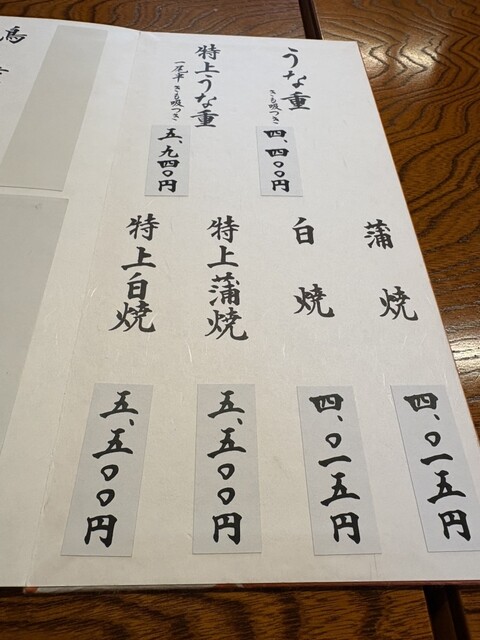 うな重
きも吸つき
四、四〇〇円
特上うな重
一尾半 きも吸つき
五、九四〇円
蒲焼
四、〇一五円
白焼
四、〇一五円
特上蒲焼
五、五〇〇円
特上白焼
五、五〇〇円